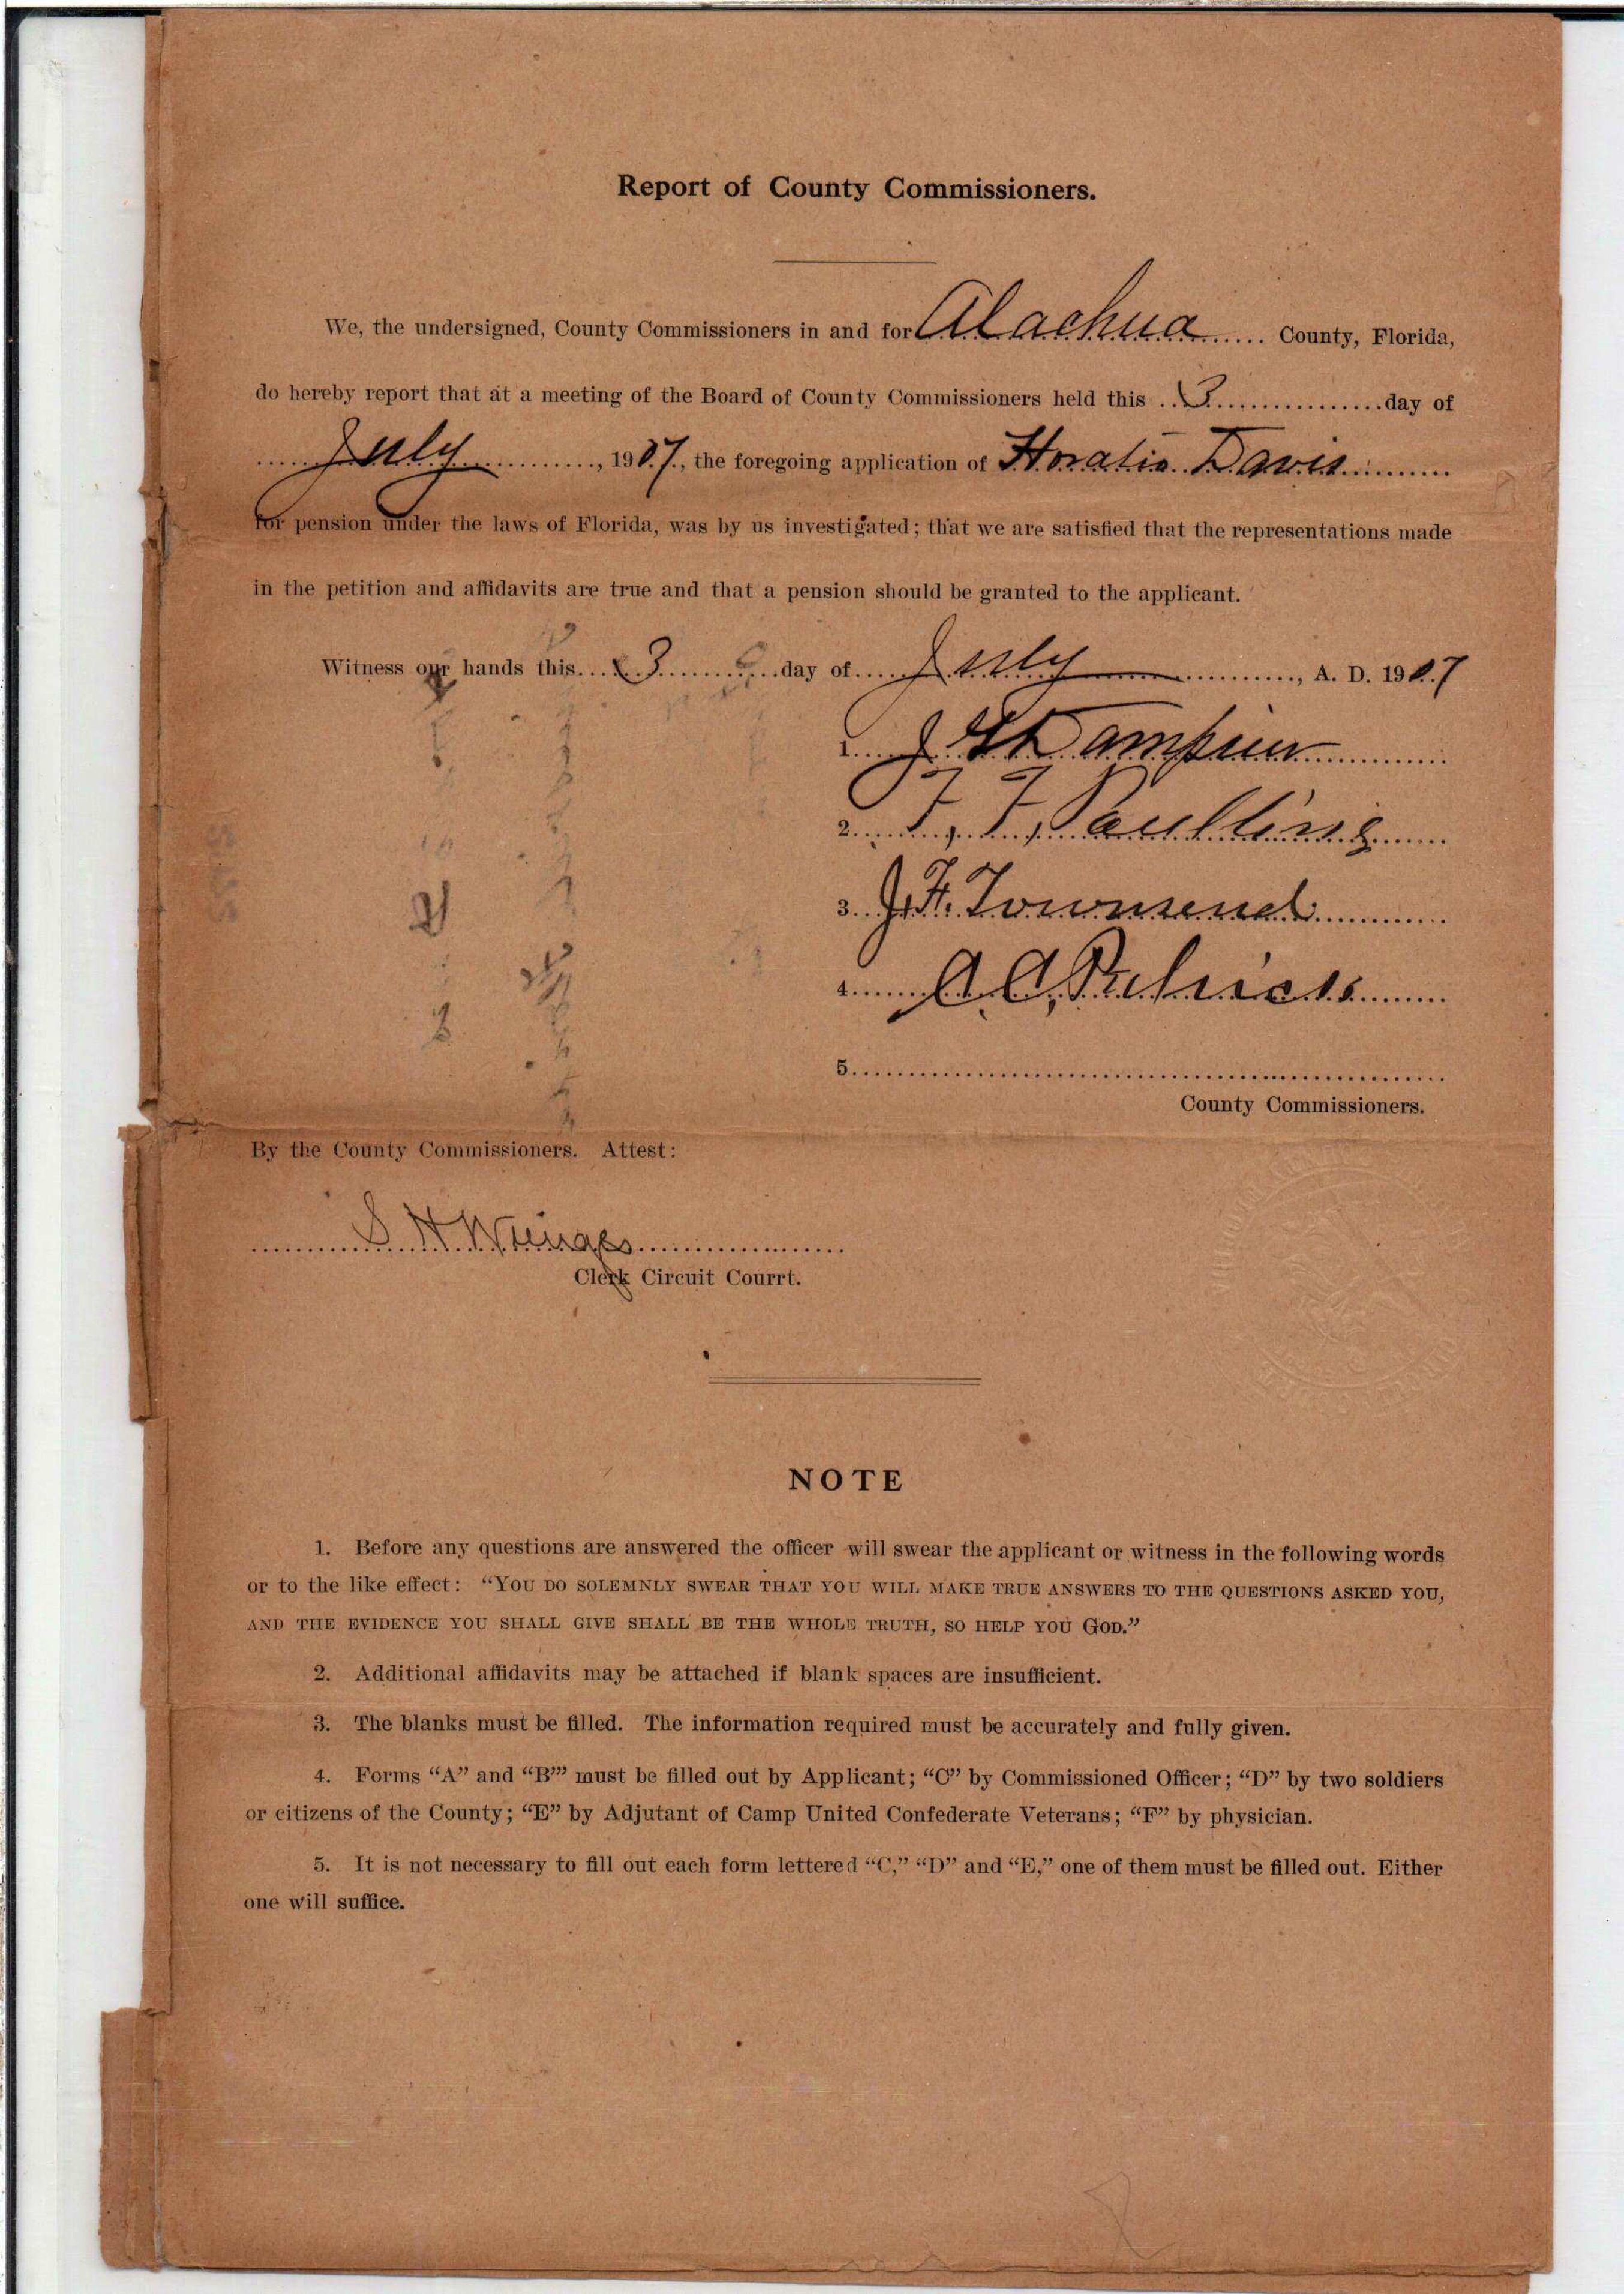 Report of County Commissioners.
We, the undersigned, County Commissioners in and for Alachua County, Florida,
do hereby report that at a meeting of the Board of County Commissioners held this 3 day of
July, 1907, the foregoing application of Horatio Davis
for pension under the laws of Florida, was by us investigated; that we are satisfied that the representations made
in the petition and affidavits are true and that a pension should be granted to the applicant.
Witness our hands this 3 day of July, A. D. 1907
1. J G Dampier
2. F. F. Paulling
3. J. F. Townsend
4. A. A.
5.
County Commissioners.
By the County Commissioners. Attest:
S H Wienges
Clerk Circuit Courrt.
NOTE
1. Before any questions are answered the officer will swear the applicant or witness in the following words
or to the like effect: “YOU DO SOLEMNLY SWEAR THAT YOU WILL MAKE TRUE ANSWERS TO THE QUESTIONS ASKED YOU,
AND THE EVIDENCE YOU SHALL GIVE SHALL BE THE WHOLE TRUTH, SO HELP YOU GOD.”
2. Additional affidavits may be attached if blank spaces are insufficient.
3. The blanks must be filled. The information required must be accurately and fully given.
4. Forms “A” and “B”’ must be filled out by Applicant; “C” by Commissioned Officer; “D” by two soldiers
or citizens of the County; “E” by Adjutant of Camp United Confederate Veterans; “F” by physician.
5. It is not necessary to fill out each form lettered “C,” “D” and “E,” one of them must be filled out. Either
one will suffice.